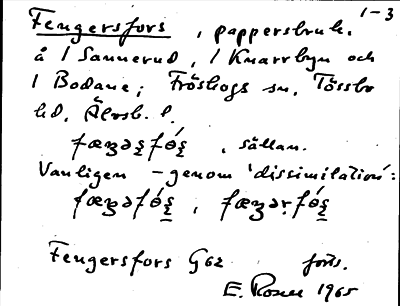 1-3
Fengersfors , pappersbruk.
å 1 Sannerud, 1 Knarrbyn och
1 Bodane; Fröskogs sn, Tössbo
hd, Älvsb. l.
, sällan.
Vanligen - genom 'dissimilation':
Fengersfors G62 forts.
E. Rosell 1965